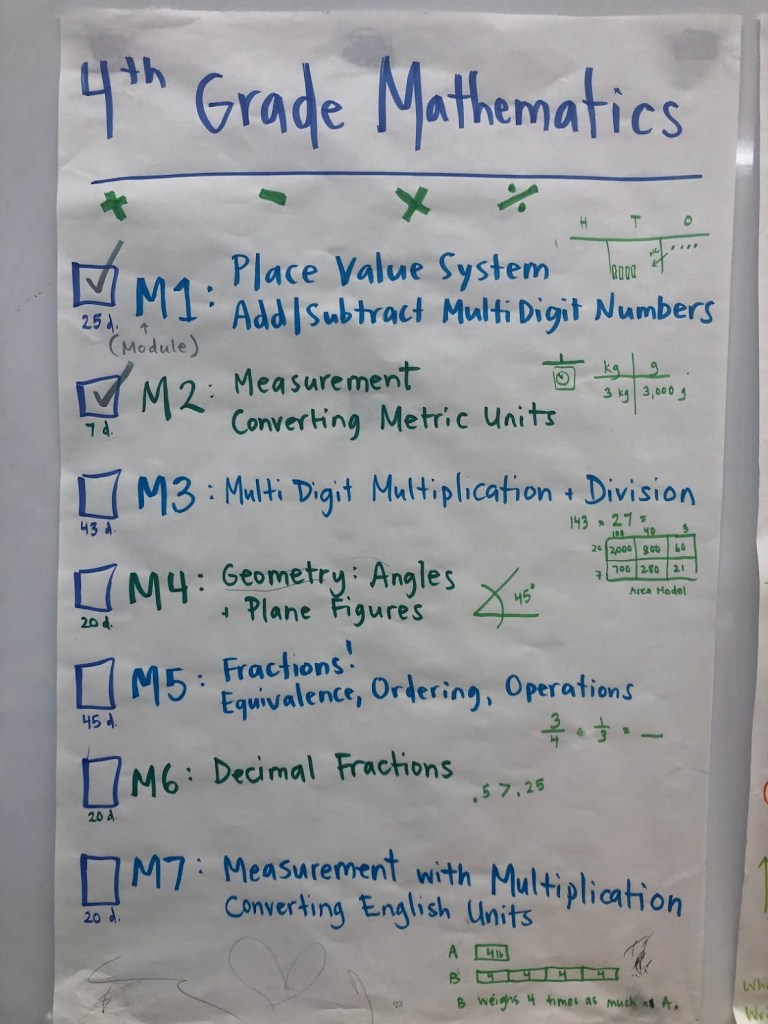 4th Grade Mathematics
+ - × ÷
H T O
M1: Place Value System
Add/Subtract MultiDigit Numbers
25 d.
(Module)
M2: Measurement
Converting Metric Units
7 d.
kg g
3 kg 3,000 g
M3: Multi Digit Multiplication + Division
43 d.
143 × 27 =
100 40 3
20 2,000 800 60
7 700 280 21
Area Model
M4: Geometry: Angles
+ Plane Figures
20 d.
45°
M5: Fractions!
Equivalence, Ordering, Operations
45 d.
3/4 + 1/3 = __
M6: Decimal Fractions
20 d.
.5 > .25
M7: Measurement with Multiplication
Converting English Units
20 d.
A 4 lb
B 4 4 4 4
B weighs 4 times as much as A.